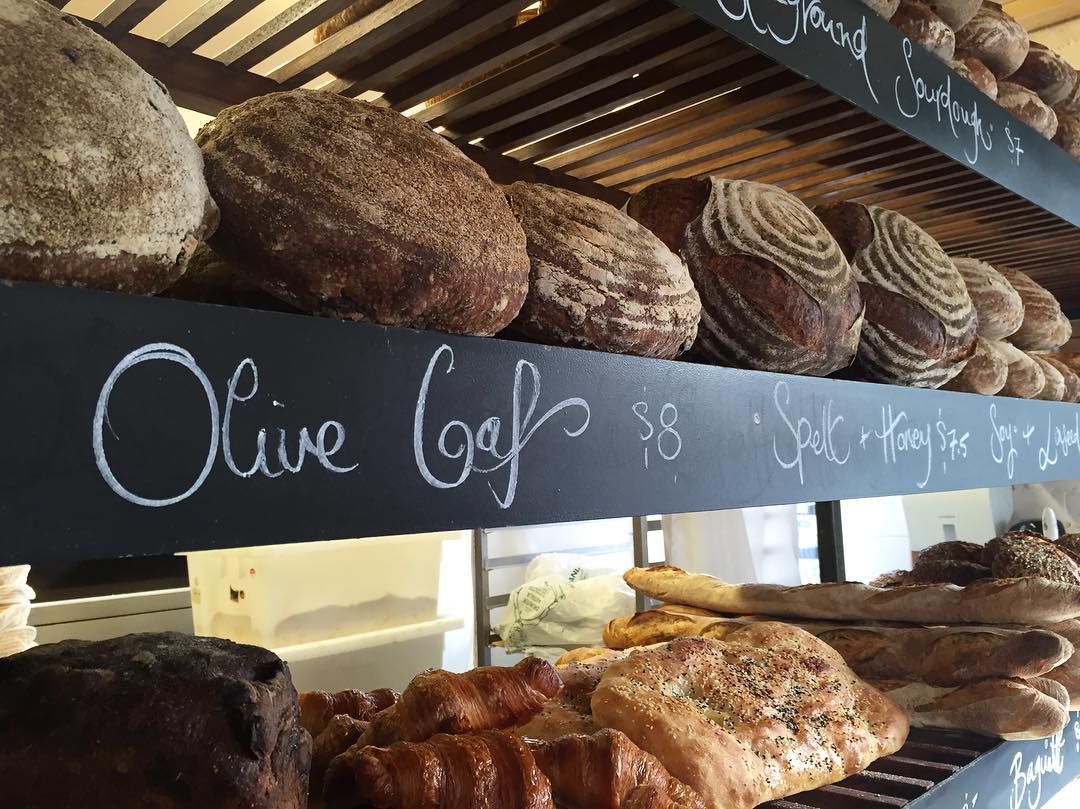 ground Sourdough $7
Olive Loaf $8 Spelt + Honey $7.5 Soy +
Baguette